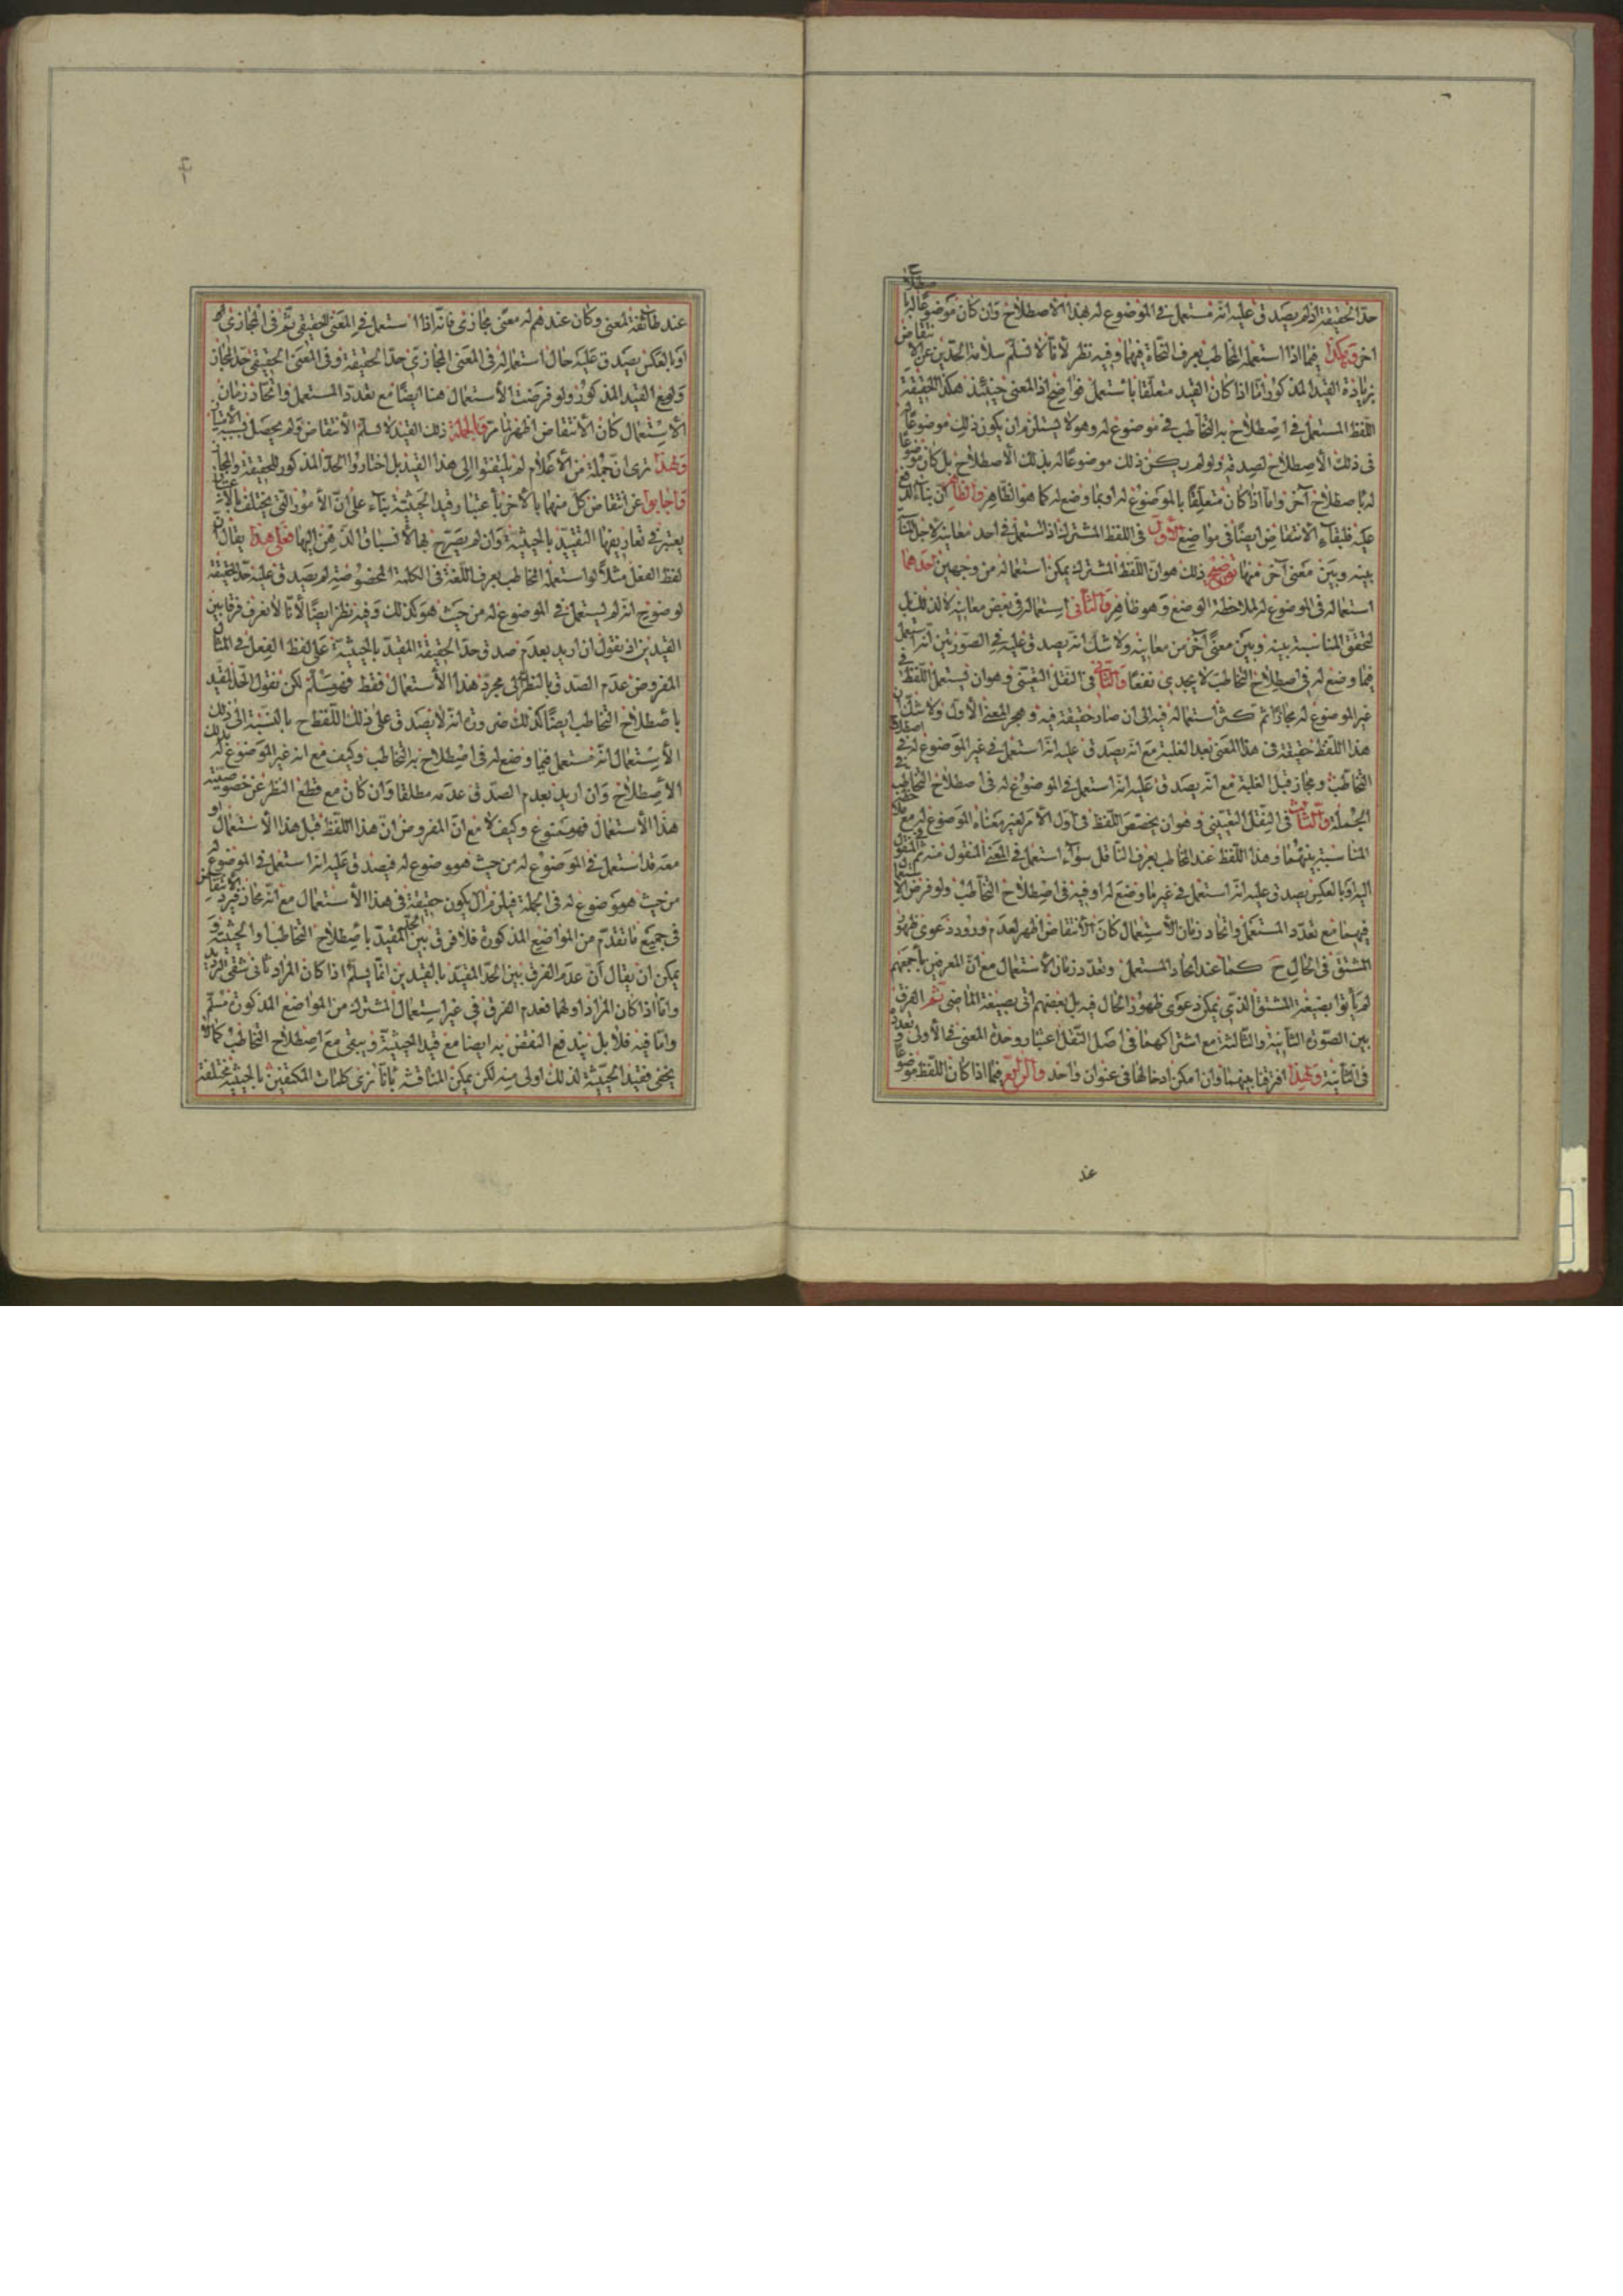 حدّ الحقيقة اذ لم يصدق عليه انّه مستعمل في الموضوع له بهذا الاصطلاح وان كان موضوعًا له باصطلاح
اخر وهكذا فيما اذا استعمله المخاطب بعرف النحاة فيهما وفيه نظر لأنّا لا نسلّم سلامة الحدّين عن الانتقاض
بزيادة القيد المذكور امّا اذا كان القيد متعلّقا باستعمل فواضح اذ المعنى حينئذ هكذا الحقيقة
اللّفظ المستعمل في اصطلاح به التخاطب في موضوع له وهو لا يستلزم ان يكون ذلك موضوعًا له
في ذلك الاصطلاح لصدقه ولو لم يكن ذلك موضوعًا له بذلك الاصطلاح بل كان موضوعًا
له باصطلاح آخر وامّا اذا كان متعلّقًا بالموضوع له او بما وضع له كما هو الظاهر فالظاهر انّ بناءً
عليه فلبقاء الانتقاض ايضًا في مواضع الأول في اللفظ المشترك اذا استعمل في احد معانيه لاجل المناسبة
بينه وبين معنى آخر منها توضيح ذلك هو انّ اللّفظ المشترك يمكن استعماله من وجهين احدهما
استعماله في الموضوع له لملاحظة الوضع وهو ظاهر والثاني استعماله في بعض معانيه لا لذلك بل
لتحقّق المناسبة بينه وبين معنًى آخر من معانيه ولا شك انّه يصدق عليه في الصورتين انّه استعمل
فيما وضع له في اصطلاح التخاطب لا يجدى نفعًا والثاني في النقل التعيّني وهو ان يستعمل اللّفظ في
غير الموضوع له مجازًا ثم كثر استعماله فيه الى ان صار حقيقة فيه وهجر المعنى الأول ولا شك ان
هذا اللّفظ حقيقة في هذا المعنى بعد الغلبة مع انّه يصدق عليه انّه استعمل في غير الموضوع له في اصطلاح
التخاطب ومجاز قبل الغلبة مع انّه يصدق عليه انّه استعمل في الموضوع له في اصطلاح التخاطب في
الجملة والثالث في النقل التعييني وهو ان يخصّص اللّفظ في اوّل الأمر لغير معناه الموضوع له مع ملاحظة
المناسبة بينهما وهذا اللّفظ عند المخاطب بعرف الناقل سوآء استعمل في المعنى المنقول منه ثم في المنقول
اليه او بالعكس يصدق عليه انّه استعمل في غير ما وضع له او فيه في اصطلاح التخاطب ولو فرض الاستعمال
فيهما مع تعدّد المستعمل واتحاد زمان الأستعمال كان الأنتقاض اظهر لعدم ورود دعوى ظهور
المشتق في الحال ح كما عند اتحاد المستعمل وتعدّد زمان الاستعمال مع انّ المعرّفين باجمعهم
لم يأتوا بصيغة المشتق الذي يمكن دعوى ظهوره الحال فيه بل بعضهم اتى بصيغة الماضي ثم الفرق
بين الصورة الثانية والثالثة مع اشتراكهما في اصل النّقل اعتبار وحدة المعنى في الأولى وتعدده
في الثانية ولهذا افرقنا بينهما وان امكن ادخالها في عنوان واحد والرابع فيما اذا كان اللّفظ موضوعًا
عند
عند طائفة لمعنى وكان عندهم له معنى مجازي فانّه اذا استعمل في المعنى الحقيقي ثم في المجازي له
او بالعكس يصدق عليه حال استعماله في المعنى المجازي حدّ الحقيقة وفي المعنى الحقيقي حدّ المجاز
ولو مع القيد المذكور ولو فرضت الأستعمال هنا ايضًا مع تعدّد المستعمل واتحاد زمان
الاستعمال كان الأنتقاض اظهر لما مرّ وبالجملة ذلك القيد لا يسلّم الأنتقاض ولم يحصل بسببه الأمتياز
ولهذا ترى انّ جملة من الأعلام لم يلتفتوا الى هذا القيد بل اختاروا الحدّ المذكور للحقيقة والمجاز
واجابوا عن انتقاض كلّ منهما بالاخر باعتبار قيد الحيثيّة بناء على انّ الأمور التي يختلف بالاعتبار
يعتبر في تعاريفها التقييد بالحيثيّة وان لم يصرّح بها لأنسباق الذهن اليها فعلى هذا يقال ان
لفظ الفعل مثلاً لو استعمله المخاطب بعرف اللّغة في الكلمة المخصوصة لم يصدق عليه حدّ الحقيقة
لوضوح انّه لم يستعمل في الموضوع له من حيث هو كذلك وفيه نظر ايضًا لأنّا لا نعرف فرقا بين
القيدين اذ نقول ان اريد بعدم صدق حدّ الحقيقة المقيد بالحيثيّة على لفظ الفعل في المثال
المفروض عدم الصّدق بالنظر الى مجرّد هذا الأستعمال فقط فهو مسلّم لكن نقول الحدّ المقيد
باصطلاح التخاطب ايضًا كذلك ضرورة انّه لا يصدق على ذلك اللّفظ ح بالنسبة الى ذلك
الأستعمال انّه مستعمل فيما وضع له في اصطلاح به التخاطب وكيف مع انه غير الموضوع له بذلك
الأصطلاح وان اريد بعدم الصدق عدمه مطلقا وان كان مع قطع النظر عن خصوصيّة
هذا الأستعمال فهو ممنوع وكيف لا مع انّ المفروض انّ هذا اللّفظ قبل هذا الأستعمال او
معه قد استعمل في الموضوع له من حيث هو موضوع له فيصدق عليه انّه استعمل في الموضوع له
من حيث هو موضوع له في الجملة فيلزم ان يكون حقيقة في هذا الأستعمال مع انّه مجاز فيرد الانتقاض
في جميع ما تقدّم من المواضع المذكورة فلا فرق بين الحدّ المقيّد باصطلاح التخاطب او الحيثيّة و
يمكن ان يقال انّ عدم الفرق بين الحدّ المقيّد بالقيدين انّما يسلّم اذا كان المراد ثاني شقي الترديد
وامّا اذا كان المراد اولهما فعدم الفرق في غير استعمال المشترك من المواضع المذكورة مسلّم
وامّا فيه فلا بل يندفع النقض به ايضا مع قيد الحيثيّة ويبقى مع اصطلاح التخاطب كما لا
يخفى فقيد الحيثيّة لذلك اولى منه لكن يمكن المناقشة بانّا نرى كلمات المكتفين بالحيثيّة مختلفة